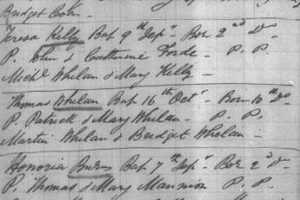 Bridget Colin
Teresa Kelly Bap 9th Sepr Bor 2nd Do
P. John & Catherine Forde – P. P.
Michl Whelan & Mary Kelly –
Thomas Whelan Bap 16th Octr – Bor 10th Do
P. Patrick & Mary Whelan – P. P.
Martin Whelan & Budget Whelan –
Honoria Burns Bap 7th Sepr Bor 2nd Do –
P. Thomas & Mary Mannion P. P.